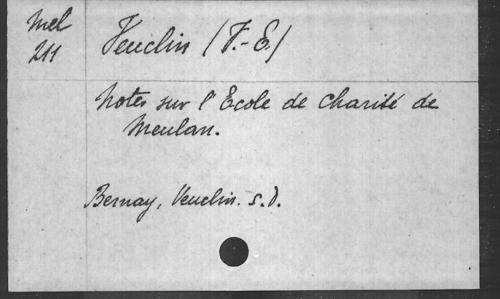 Mel
211
Veuclin (V.-E)
Notes sur l'Ecole de Charité de
Meulan.
Bernay, Veuclin. s.d.